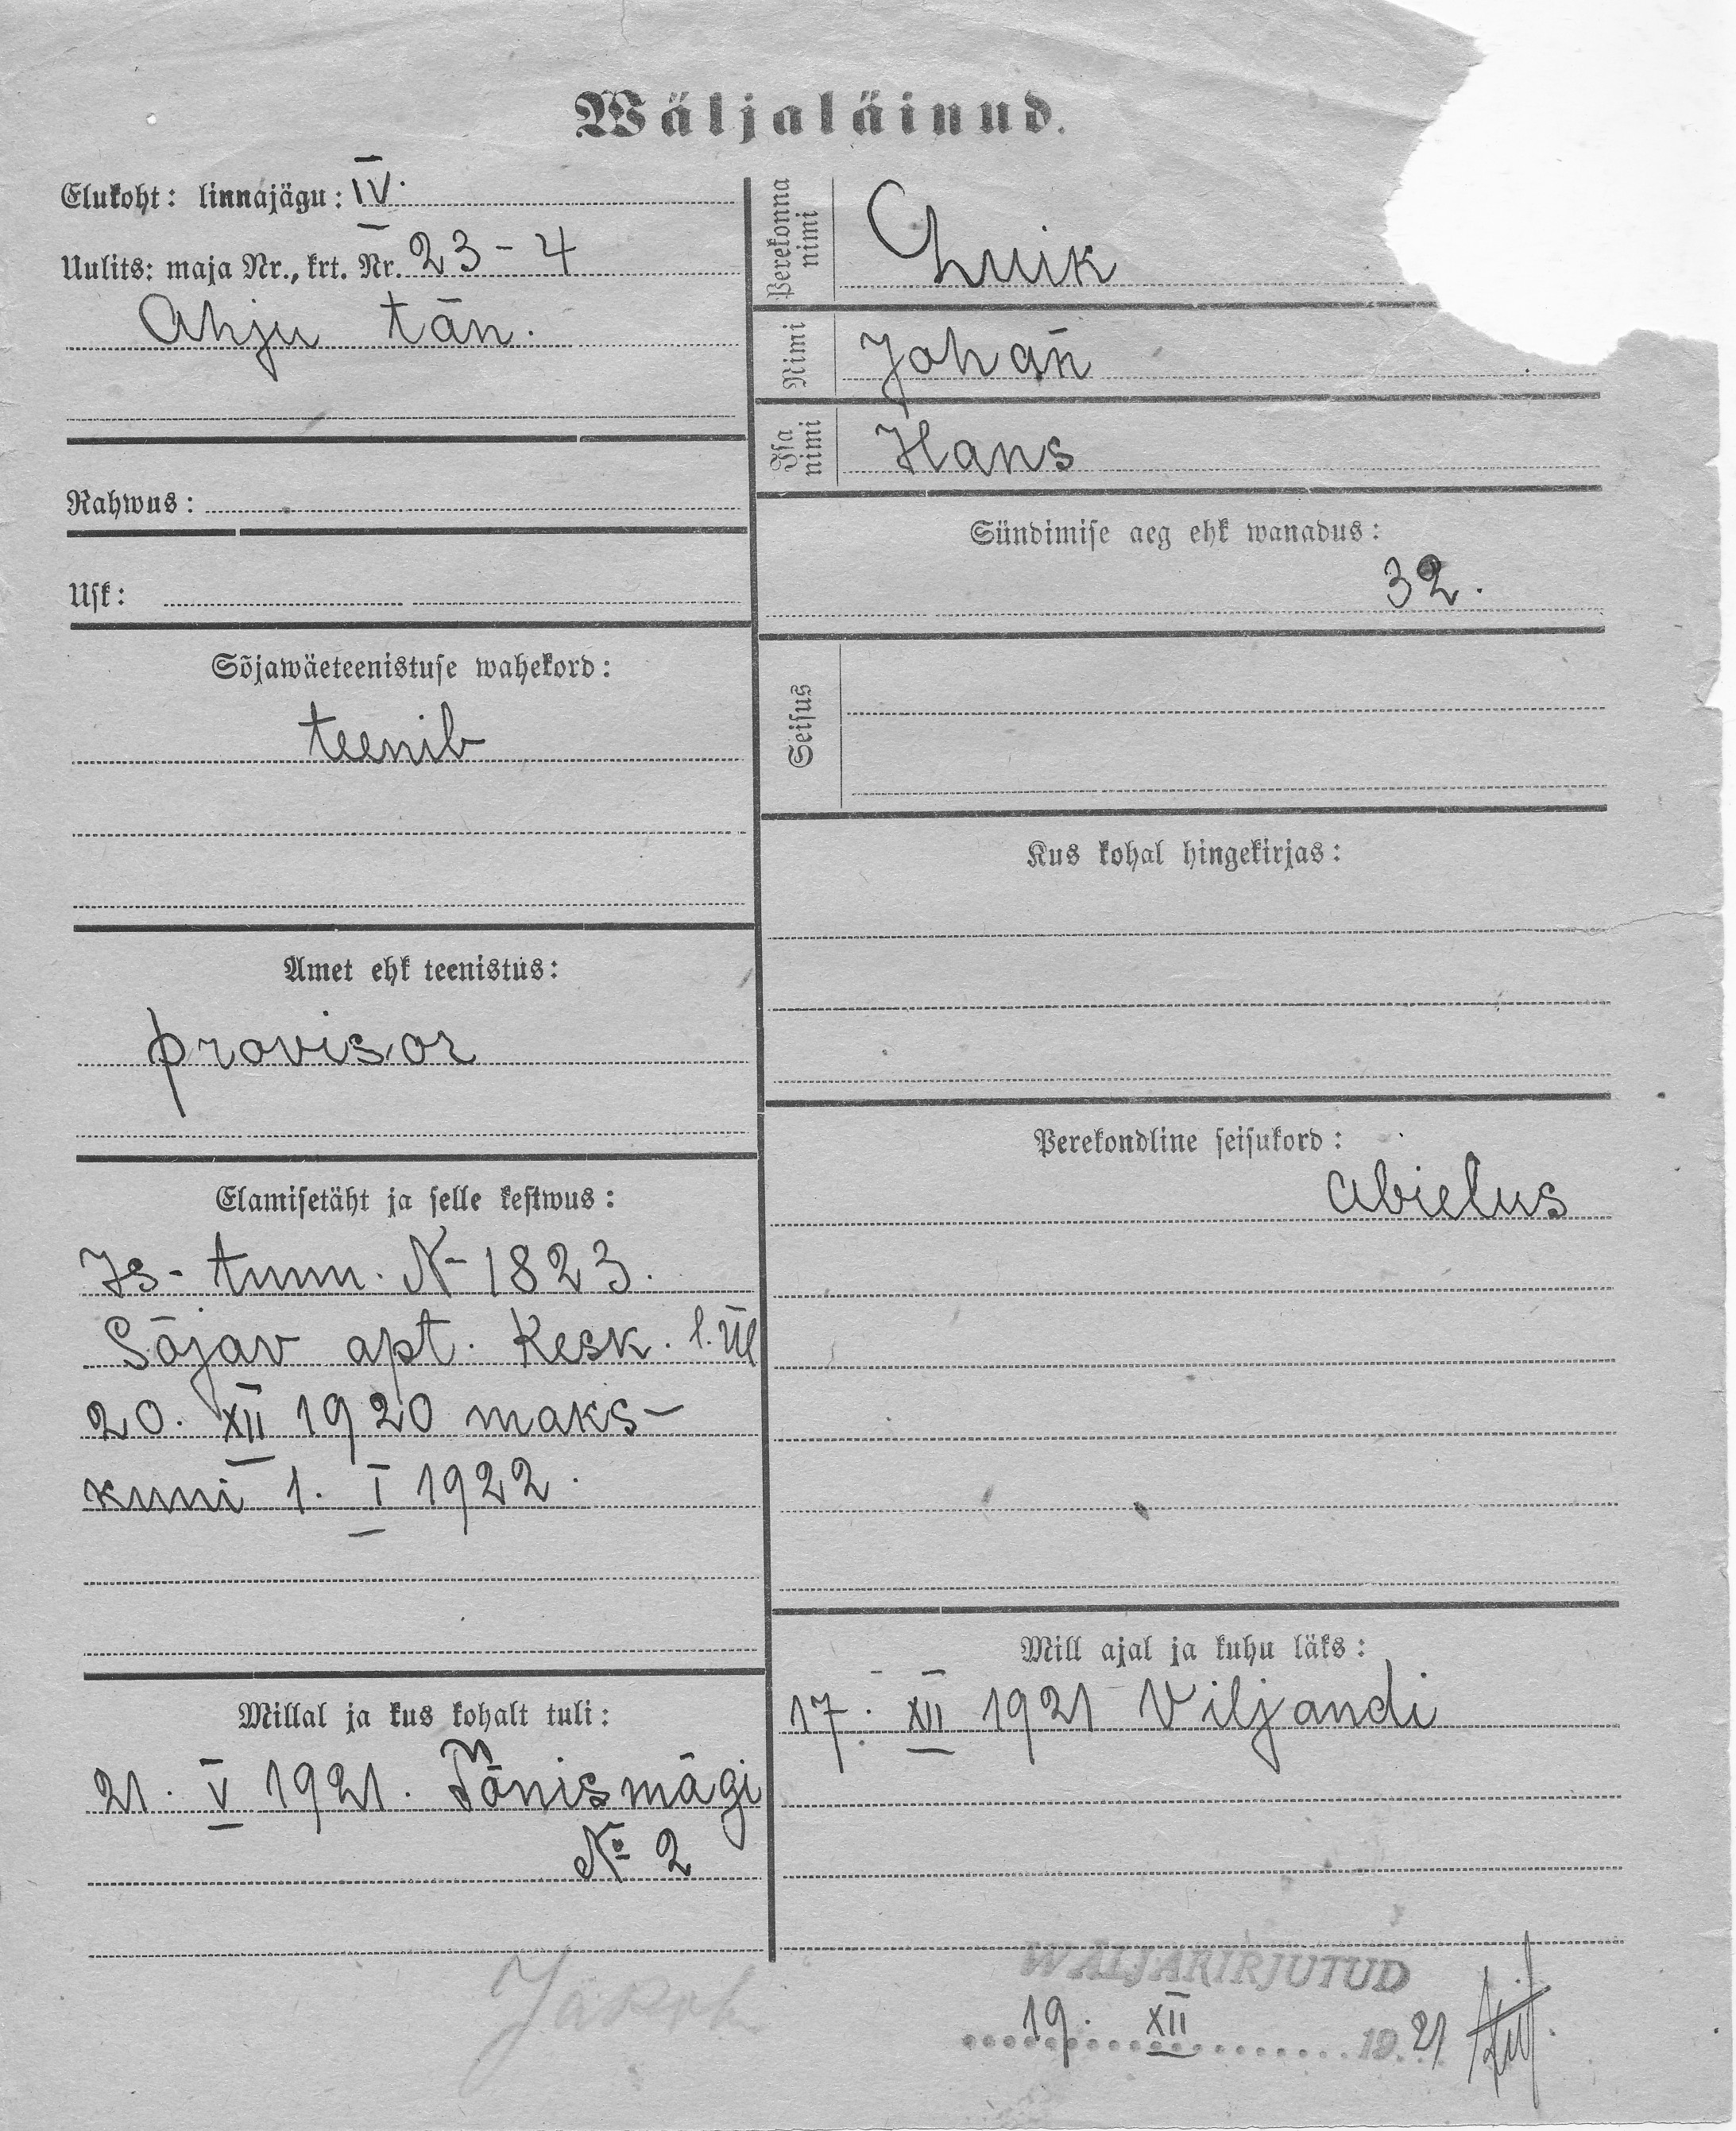 Wäljaläinud.
Elukoht: linnajägu: IV.
Uulits: maja Nr., krt. Nr. 23-4
Ahju tän.
Rahwus:
Usk:
Sõjawäeteenistuse wahekord:
teenib
Amet ehk teenistus:
provisor
Elamisetäht ja selle kestwus:
Is- tunn. N- 1823.
Sõjav apt. Kesk. l.
20. XII 1920 maks-
kuni 1. I 1922.
Millal ja kus kohalt tuli:
21. V 1921. Tõnismägi
№ 2
Perekonna
nimi
Luik
Nimi
Johan̄
Isa
nimi
Hans
Sündimise aeg ehk wanadus:
32.
Seisus
Kus kohal hingekirjas:
Perekondline seisukord:
abielus
Mill ajal ja kuhu läks:
17. XII 1921 Viljandi
WÄLJAKIRJUTUD
19. XII 1921